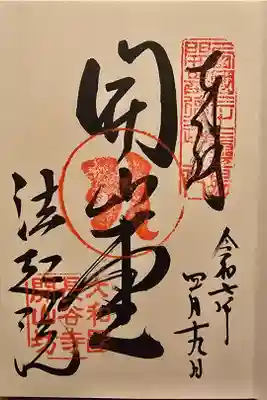 奉拝
令和六年
四月十九日
開山堂
法起院
大和国
長谷寺
開山坊